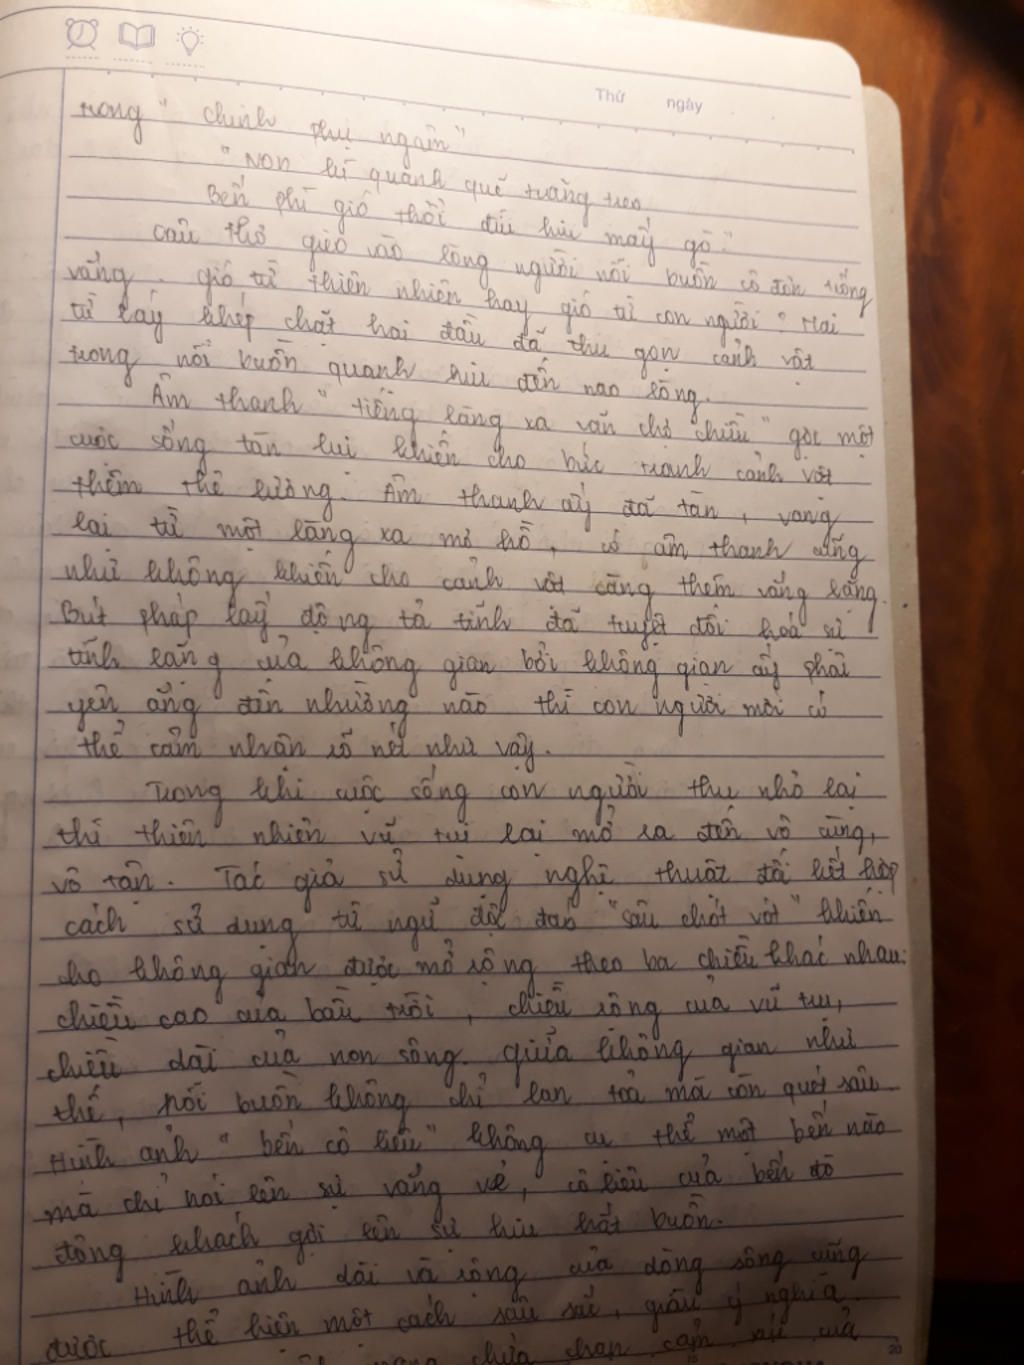 Thứ ngày
trong " chinh phụ ngâm"
"Non kì quạnh quẽ trăng treo
Bến phì gió thổi đìu hiu mấy gò"
Câu thơ gieo vào lòng người nỗi buồn cô đơn trống
vắng. gió từ thiên nhiên hay gió từ con người? Hai
từ láy khép chặt hai đầu đã thu gọn cảnh vật
trong nỗi buồn quạnh hiu đến nao lòng.
Âm thanh " tiếng làng xa vãn chợ chiều" gợi một
cuộc sống tàn lụi khiến cho bức tranh cảnh vật
thêm thê lương. Âm thanh ấy đã tàn, vọng
lại từ một làng xa mơ hồ, có âm thanh cũng
như không khiến cho cảnh vật càng thêm vắng lặng.
Bút pháp lấy động tả tĩnh đã tuyệt đối hoá sự
tĩnh lặng của không gian bởi không gian ấy phải
yên ắng đến nhường nào thì con người mới có
thể cảm nhận rõ nét như vậy.
Trong khi cuộc sống con người thu nhỏ lại
thì thiên nhiên vũ trụ lại mở ra đến vô cùng,
vô tận. Tác giả sử dụng nghệ thuật đối kết hợp
cách sử dụng từ ngữ độc đáo "sâu chót vót" khiến
cho không gian được mở rộng theo ba chiều khác nhau:
chiều cao của bầu trời, chiều rộng của vũ trụ,
chiều dài của non sông. giữa không gian như
thế, nỗi buồn không chỉ lan toả mà còn quét sâu
Hình ảnh " bến cô liêu" không cụ thể một bến nào
mà chỉ nói lên sự vắng vẻ, cô liêu của bến đò
đông khách gợi lên sự hiu hắt buồn.
Hình ảnh dài và rộng của dòng sông cũng
được thể hiện một cách sâu sắc, giàu ý nghĩa.
chứa chan cảm xúc của
20